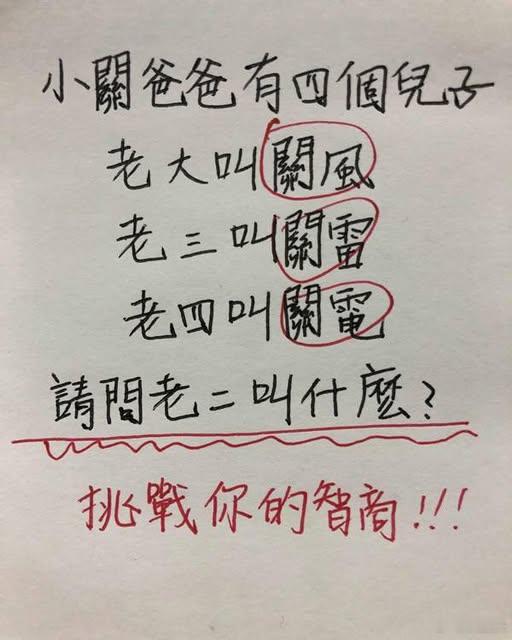 小關爸爸有四個兒子
老大叫關風
老三叫關雷
老四叫關電
請問老二叫什麼?
挑戰你的智商!!!